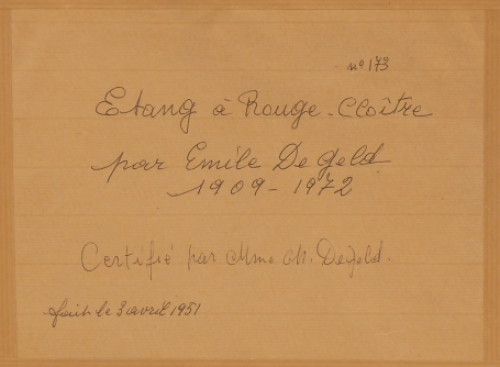 n° 173
Etang à Rouge-Cloître
par Emile Degeld
1909-1972
Certifié par Mme M. Degeld.
fait le 3 avril 1951